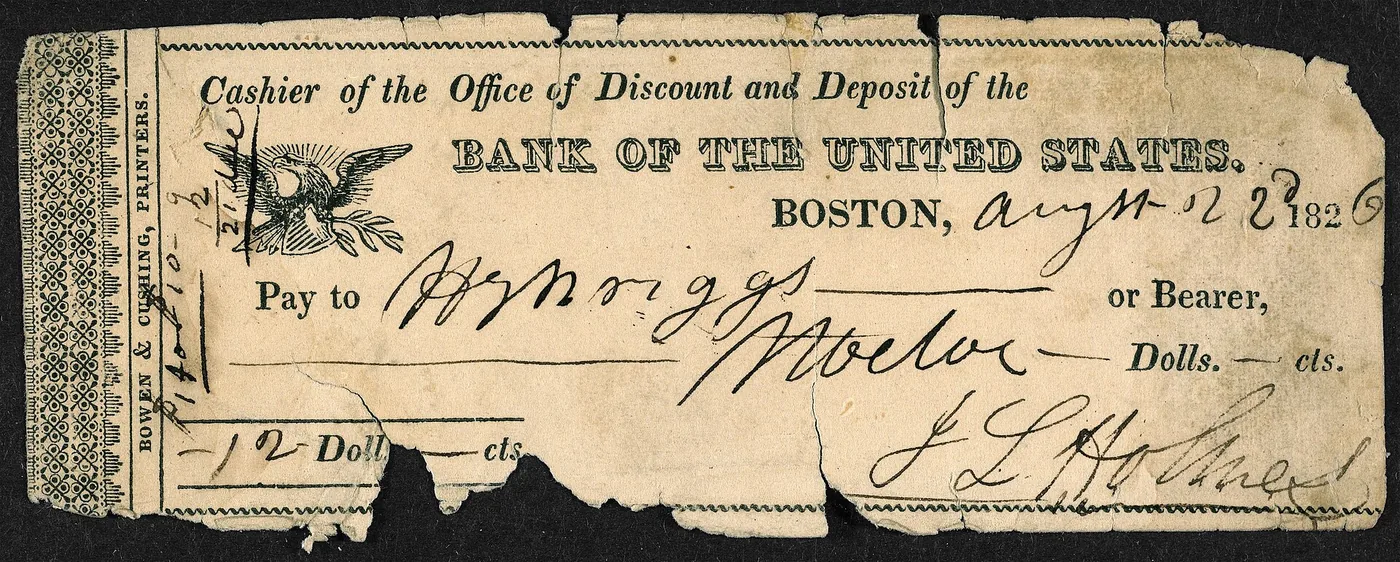 Cashier of the Office of Discount and Deposit of the
BANK OF THE UNITED STATES.
BOSTON, August 22d 1826
Pay to Hy N riggs or Bearer,
Twelve — Dolls. — cts.
J L Holmes
-12- Doll — cts
BOWEN & CUSHING, PRINTERS.